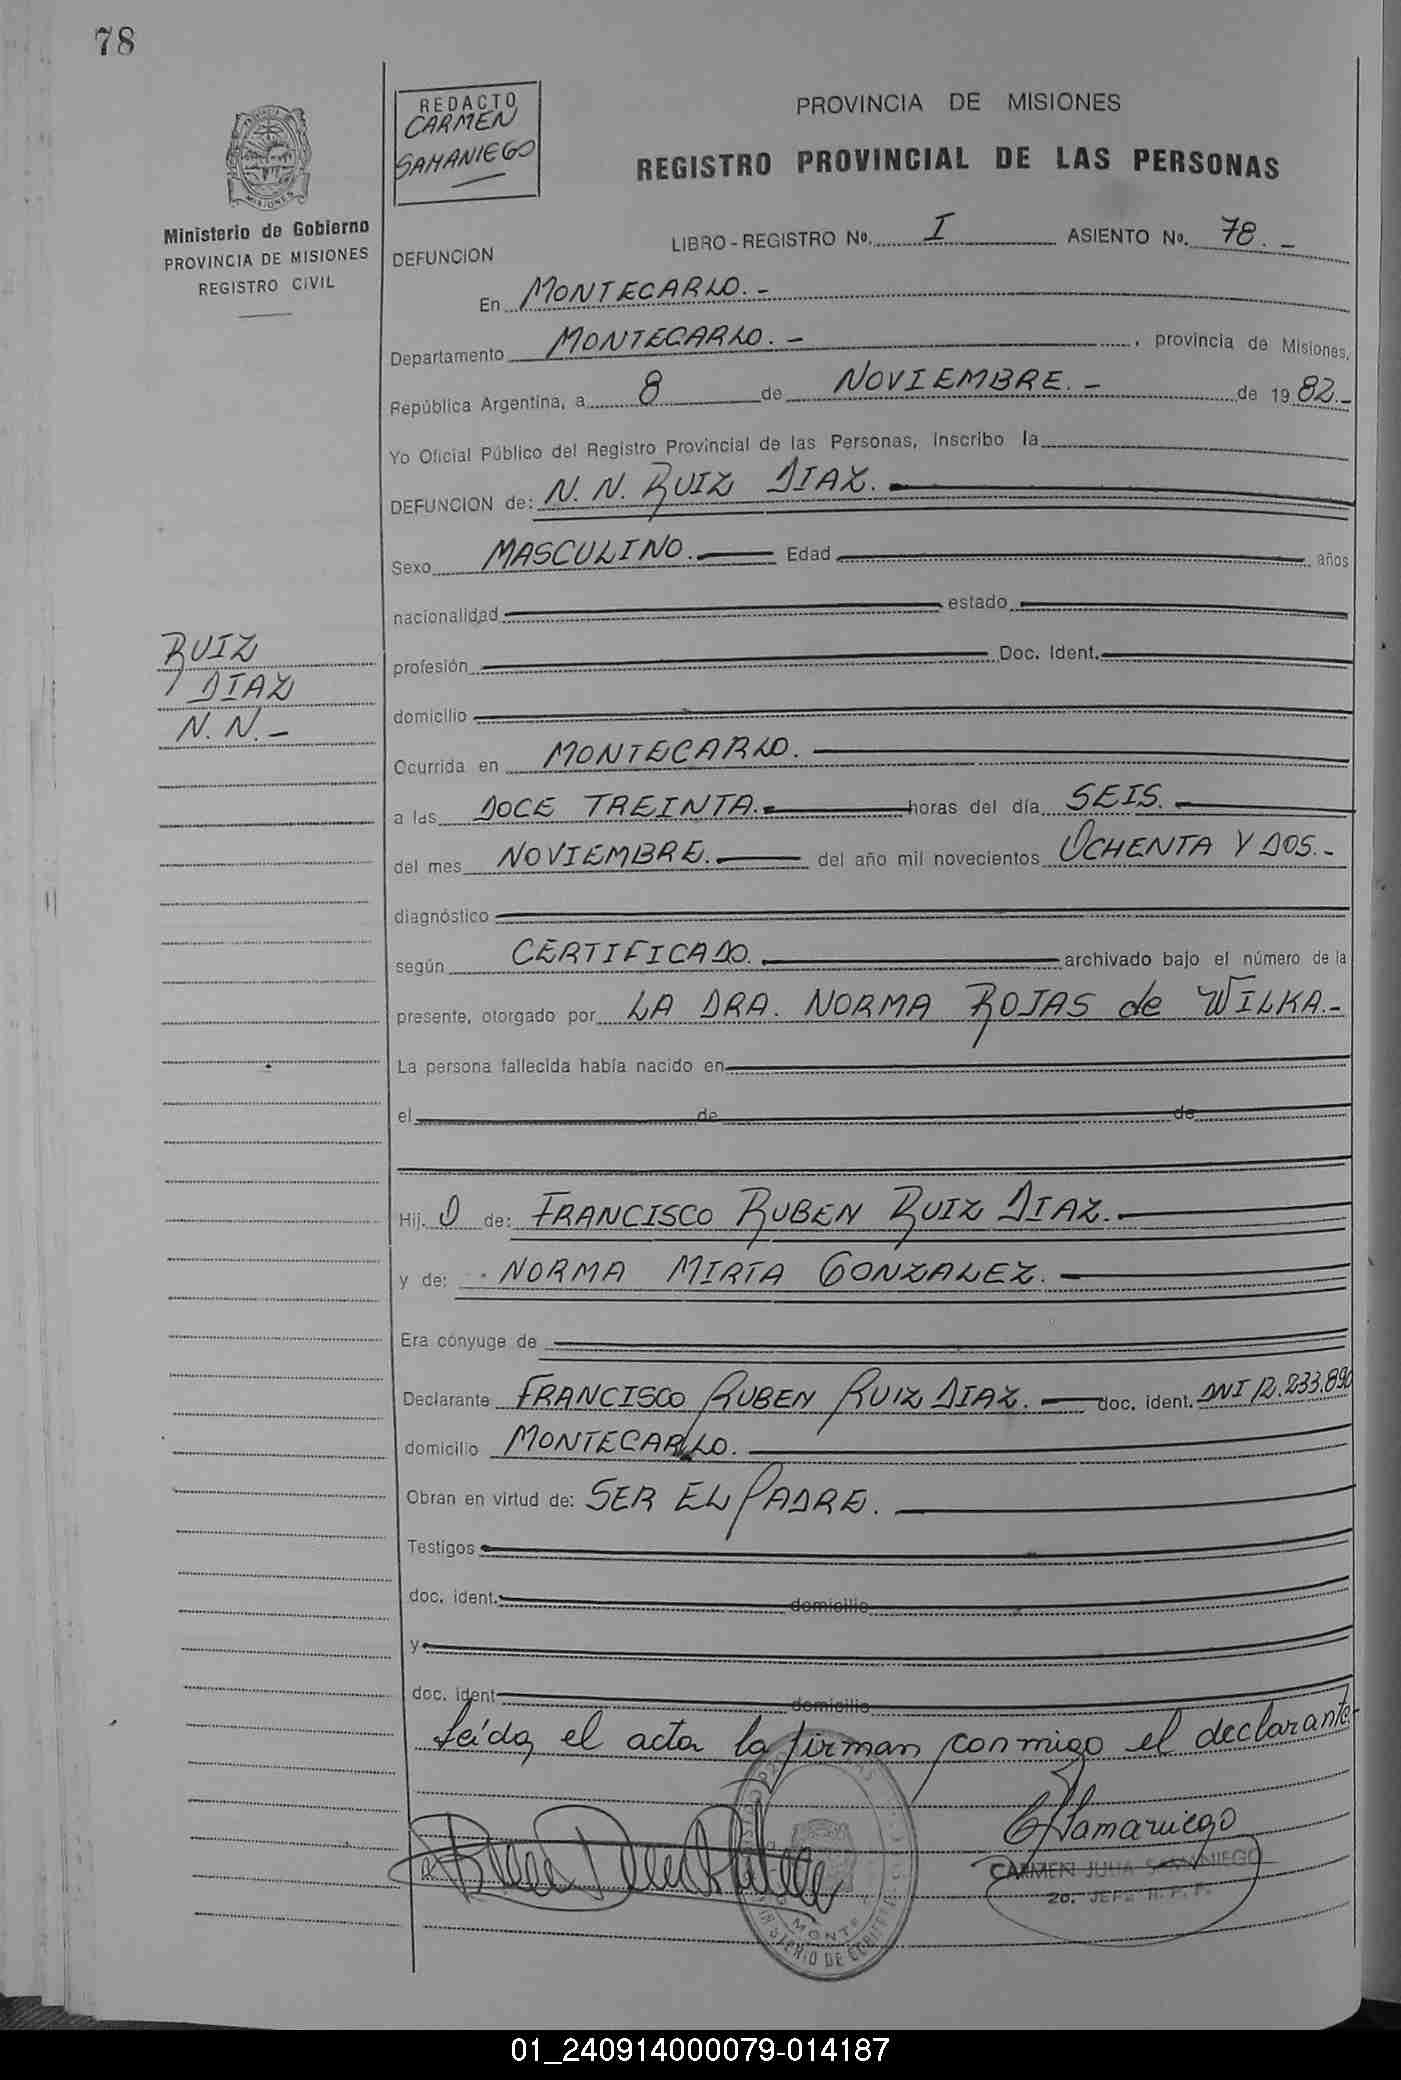 78
REDACTO
CARMEN
SAMANIEGO
PROVINCIA DE MISIONES
REGISTRO PROVINCIAL DE LAS PERSONAS
MISIONES
Ministerio de Gobierno
PROVINCIA DE MISIONES
REGISTRO CIVIL
LIBRO - REGISTRO No. I ASIENTO No. 78. -
DEFUNCION
En MONTECARLO. -
Departamento MONTECARLO. - , provincia de Misiones,
República Argentina, a 8 de NOVIEMBRE. - de 1982.-
Yo Oficial Público del Registro Provincial de las Personas, inscribo la
DEFUNCION de: N. N. RUIZ DIAZ.
Sexo MASCULINO. Edad años
nacionalidad estado
RUIZ
DIAZ
N. N. -
profesión Doc. Ident.
domicilio
Ocurrida en MONTECARLO.
a las DOCE TREINTA. horas del día SEIS.
del mes NOVIEMBRE. del año mil novecientos OCHENTA Y DOS. -
diagnóstico
según CERTIFICADO. archivado bajo el número de la
presente, otorgado por LA DRA. NORMA ROJAS de WILKA. -
La persona fallecida había nacido en
el de de
Hij. O de: FRANCISCO RUBEN RUIZ DIAZ.
y de: NORMA MIRTA GONZALEZ.
Era cónyuge de
Declarante FRANCISCO RUBEN RUIZ DIAZ. doc. ident. DNI 12.233.890
domicilio MONTECARLO.
Obran en virtud de: SER EL PADRE.
Testigos
doc. ident. domicilio
y
doc. ident domicilio
Leída el acta la firman conmigo el declarante-
CSamaniego
CARMEN JULIA SAMANIEGO
2o. JEFE R. P. P.
01_240914000079-014187